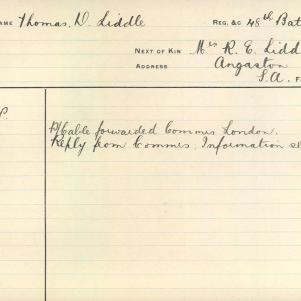 NAME Thomas, D. Liddle REG. &C 48th Bat
NEXT OF KIN Mrs R. E. Lidd
ADDRESS Angaston
S.A.
P.
Cable forwarded Commrs London.
Reply from Commrs. Information